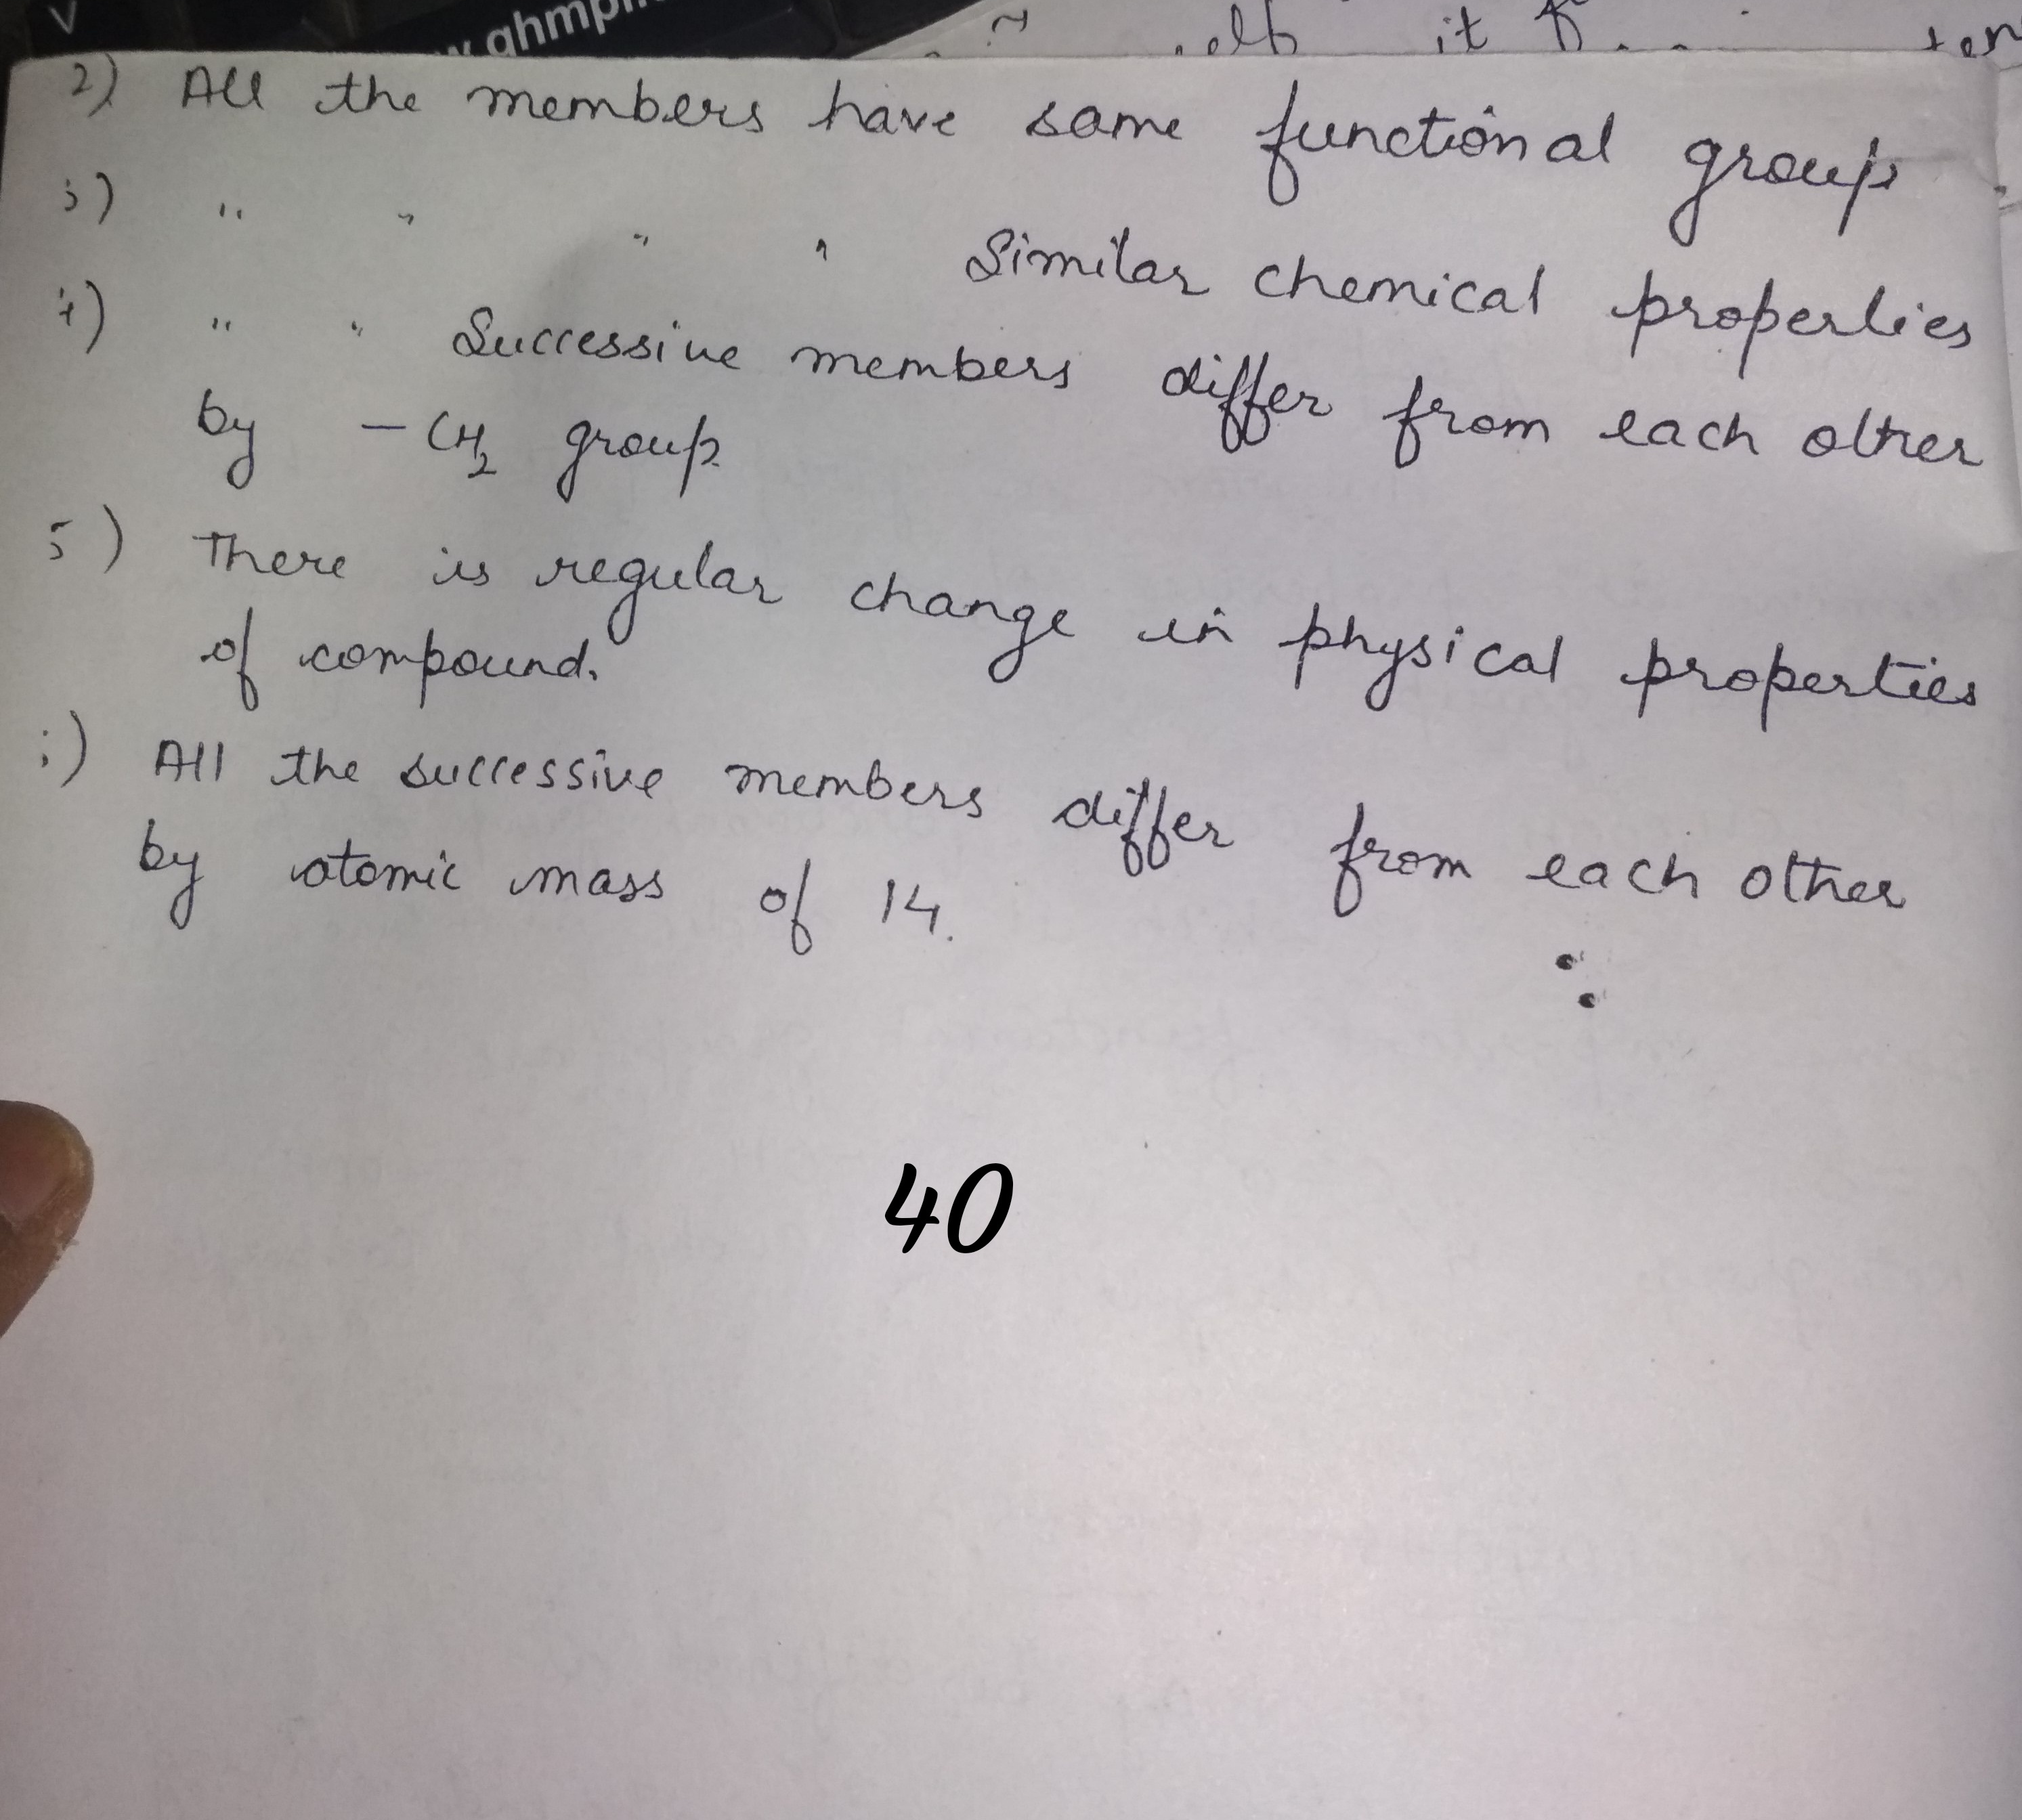 ghmp
it
2) All the members have same functional group
3) " " " " Similar chemical properties
4) " " Successive members differ from each other
by - CH2 group
5) There is regular change in physical properties
of compound.
) All the successive members differ from each other
by atomic mass of 14.
40